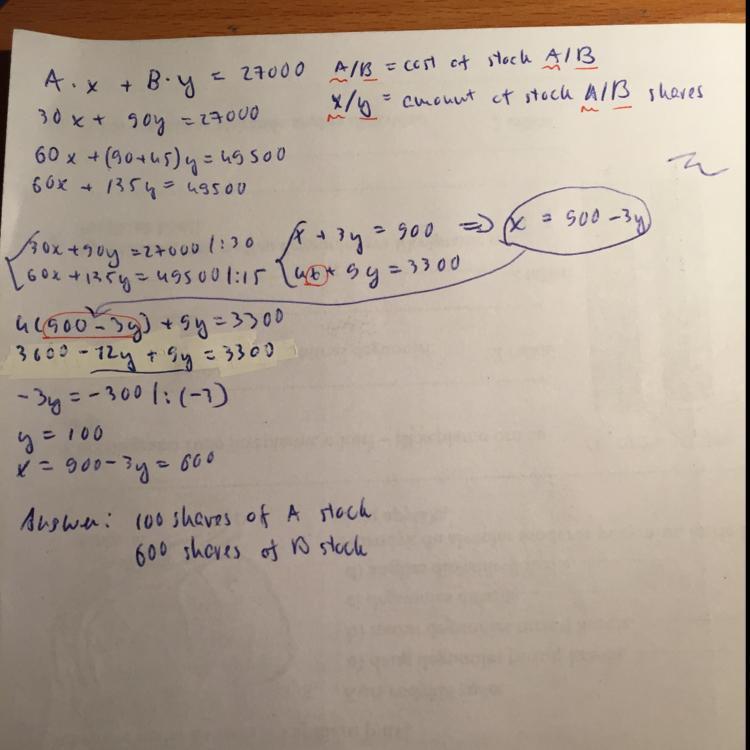 A·x + B·y = 27000
A/B = cost of stock A/B
30x + 90y = 27000
x/y = amount of stock A/B shares
60x + (90+45)y = 49500
60x + 135y = 49500
30x + 90y = 27000 /:30
60x + 135y = 49500 /:15
x + 3y = 900 => x = 900 - 3y
4x + 9y = 3300
4(900 - 3y) + 9y = 3300
3600 - 12y + 9y = 3300
-3y = -300 /:(-3)
y = 100
x = 900 - 3y = 600
Answer: 100 shares of A stock
600 shares of B stock